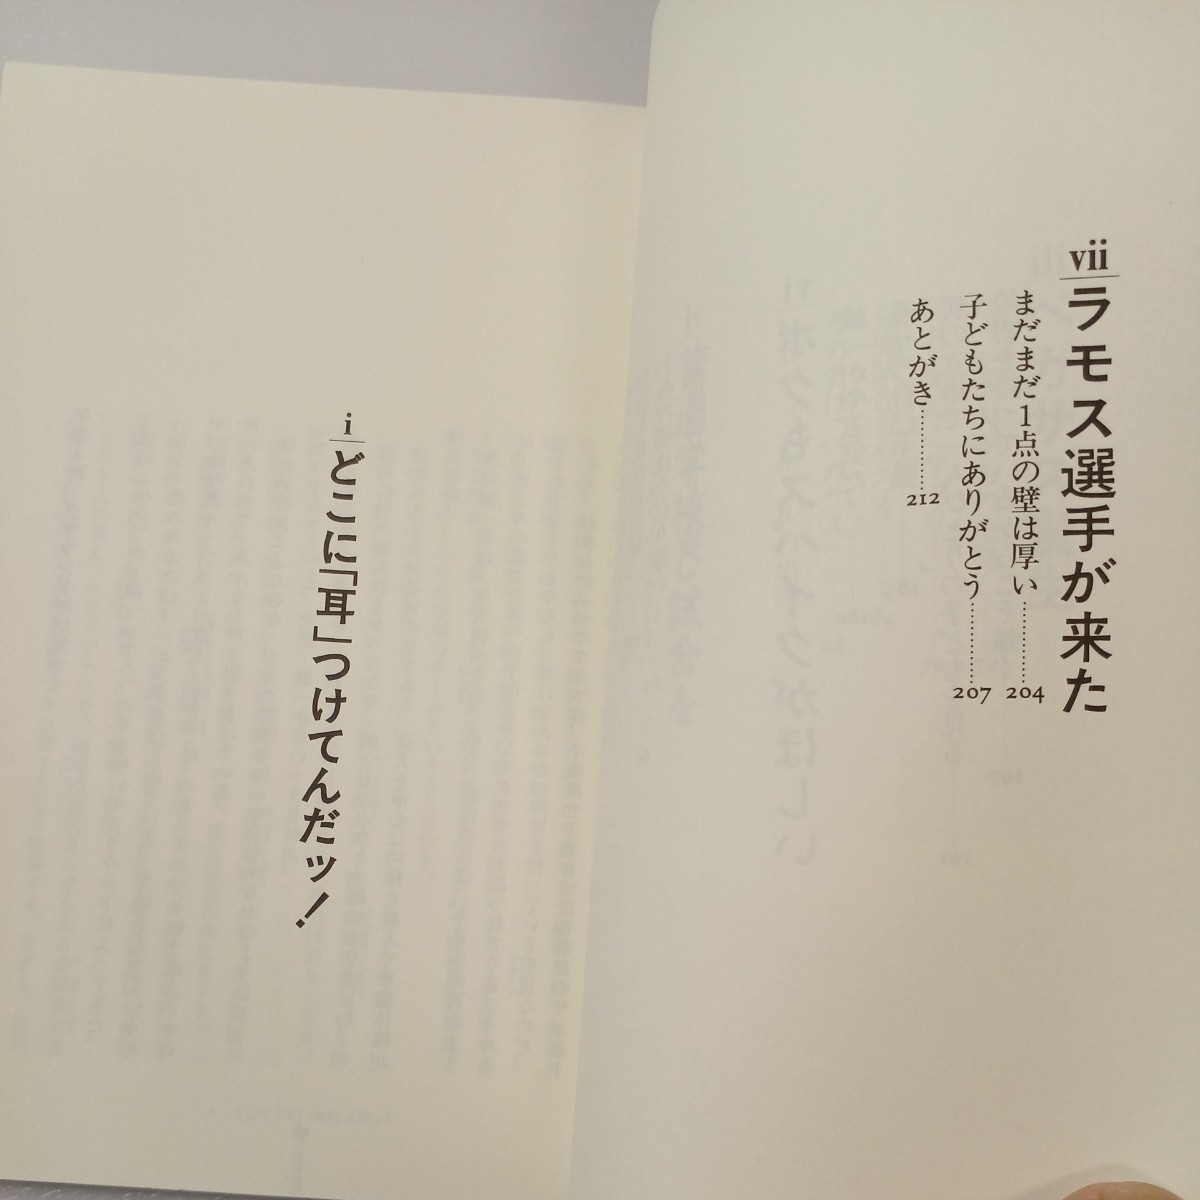 vii
ラモス選手が来た
まだまだ1点の壁は厚い…………204
子どもたちにありがとう…………207
あとがき…………212
i
どこに「耳」つけてんだッ!